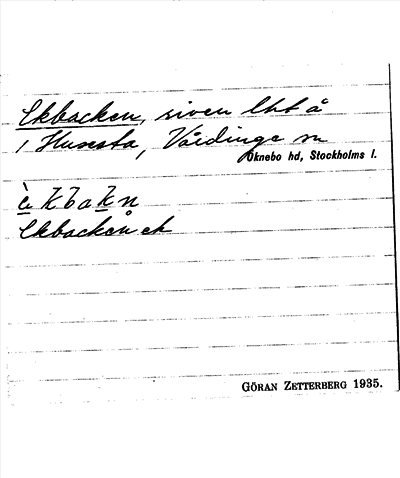 Ekbacken, riven lht å
1 Husesta, Vårdinge sn
Öknebo hd, Stockholms l.
è k b a k n
Ekbacken ek
GÖRAN ZETTERBERG 1935.